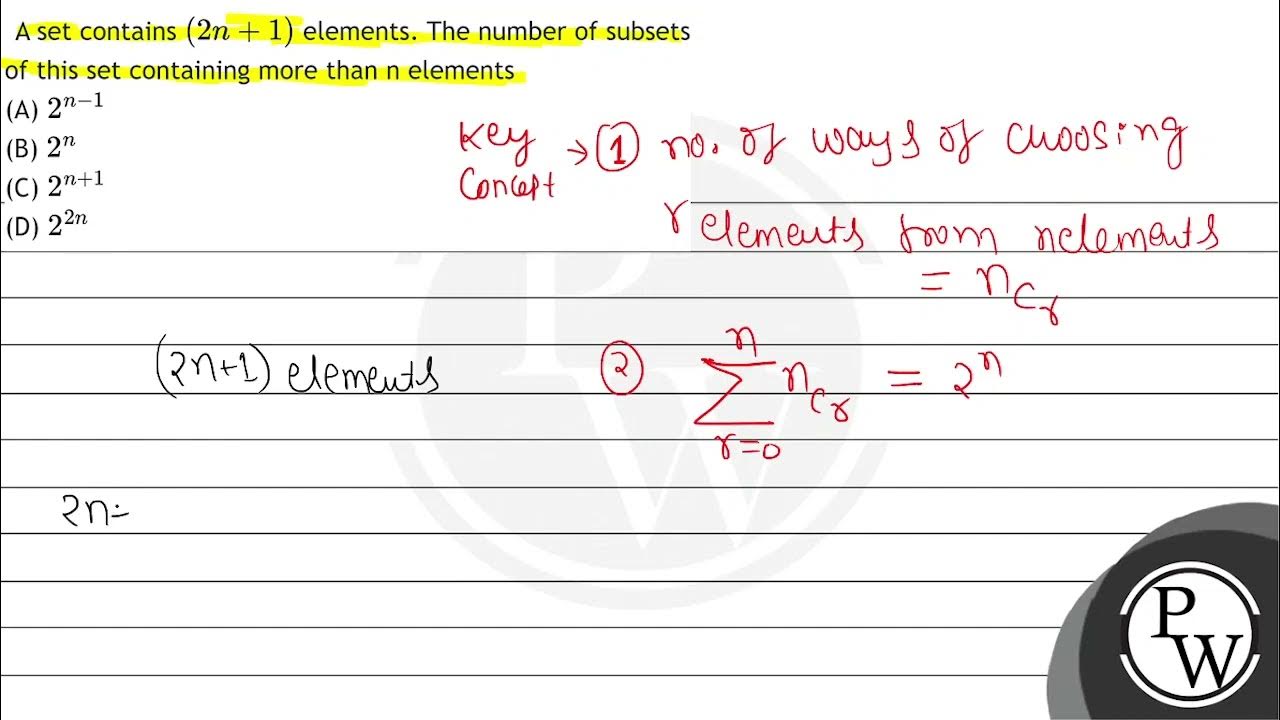 A set contains (2n + 1) elements. The number of subsets
of this set containing more than n elements
(A) 2^{n-1}
(B) 2^n
(C) 2^{n+1}
(D) 2^{2n}
Key Concept → ① no. of ways of choosing
r elements from n elements
= n_{C_r}
(2n+1) elements
② \sum_{r=0}^{n} n_{C_r} = 2^n
2n=
P
W
P
W